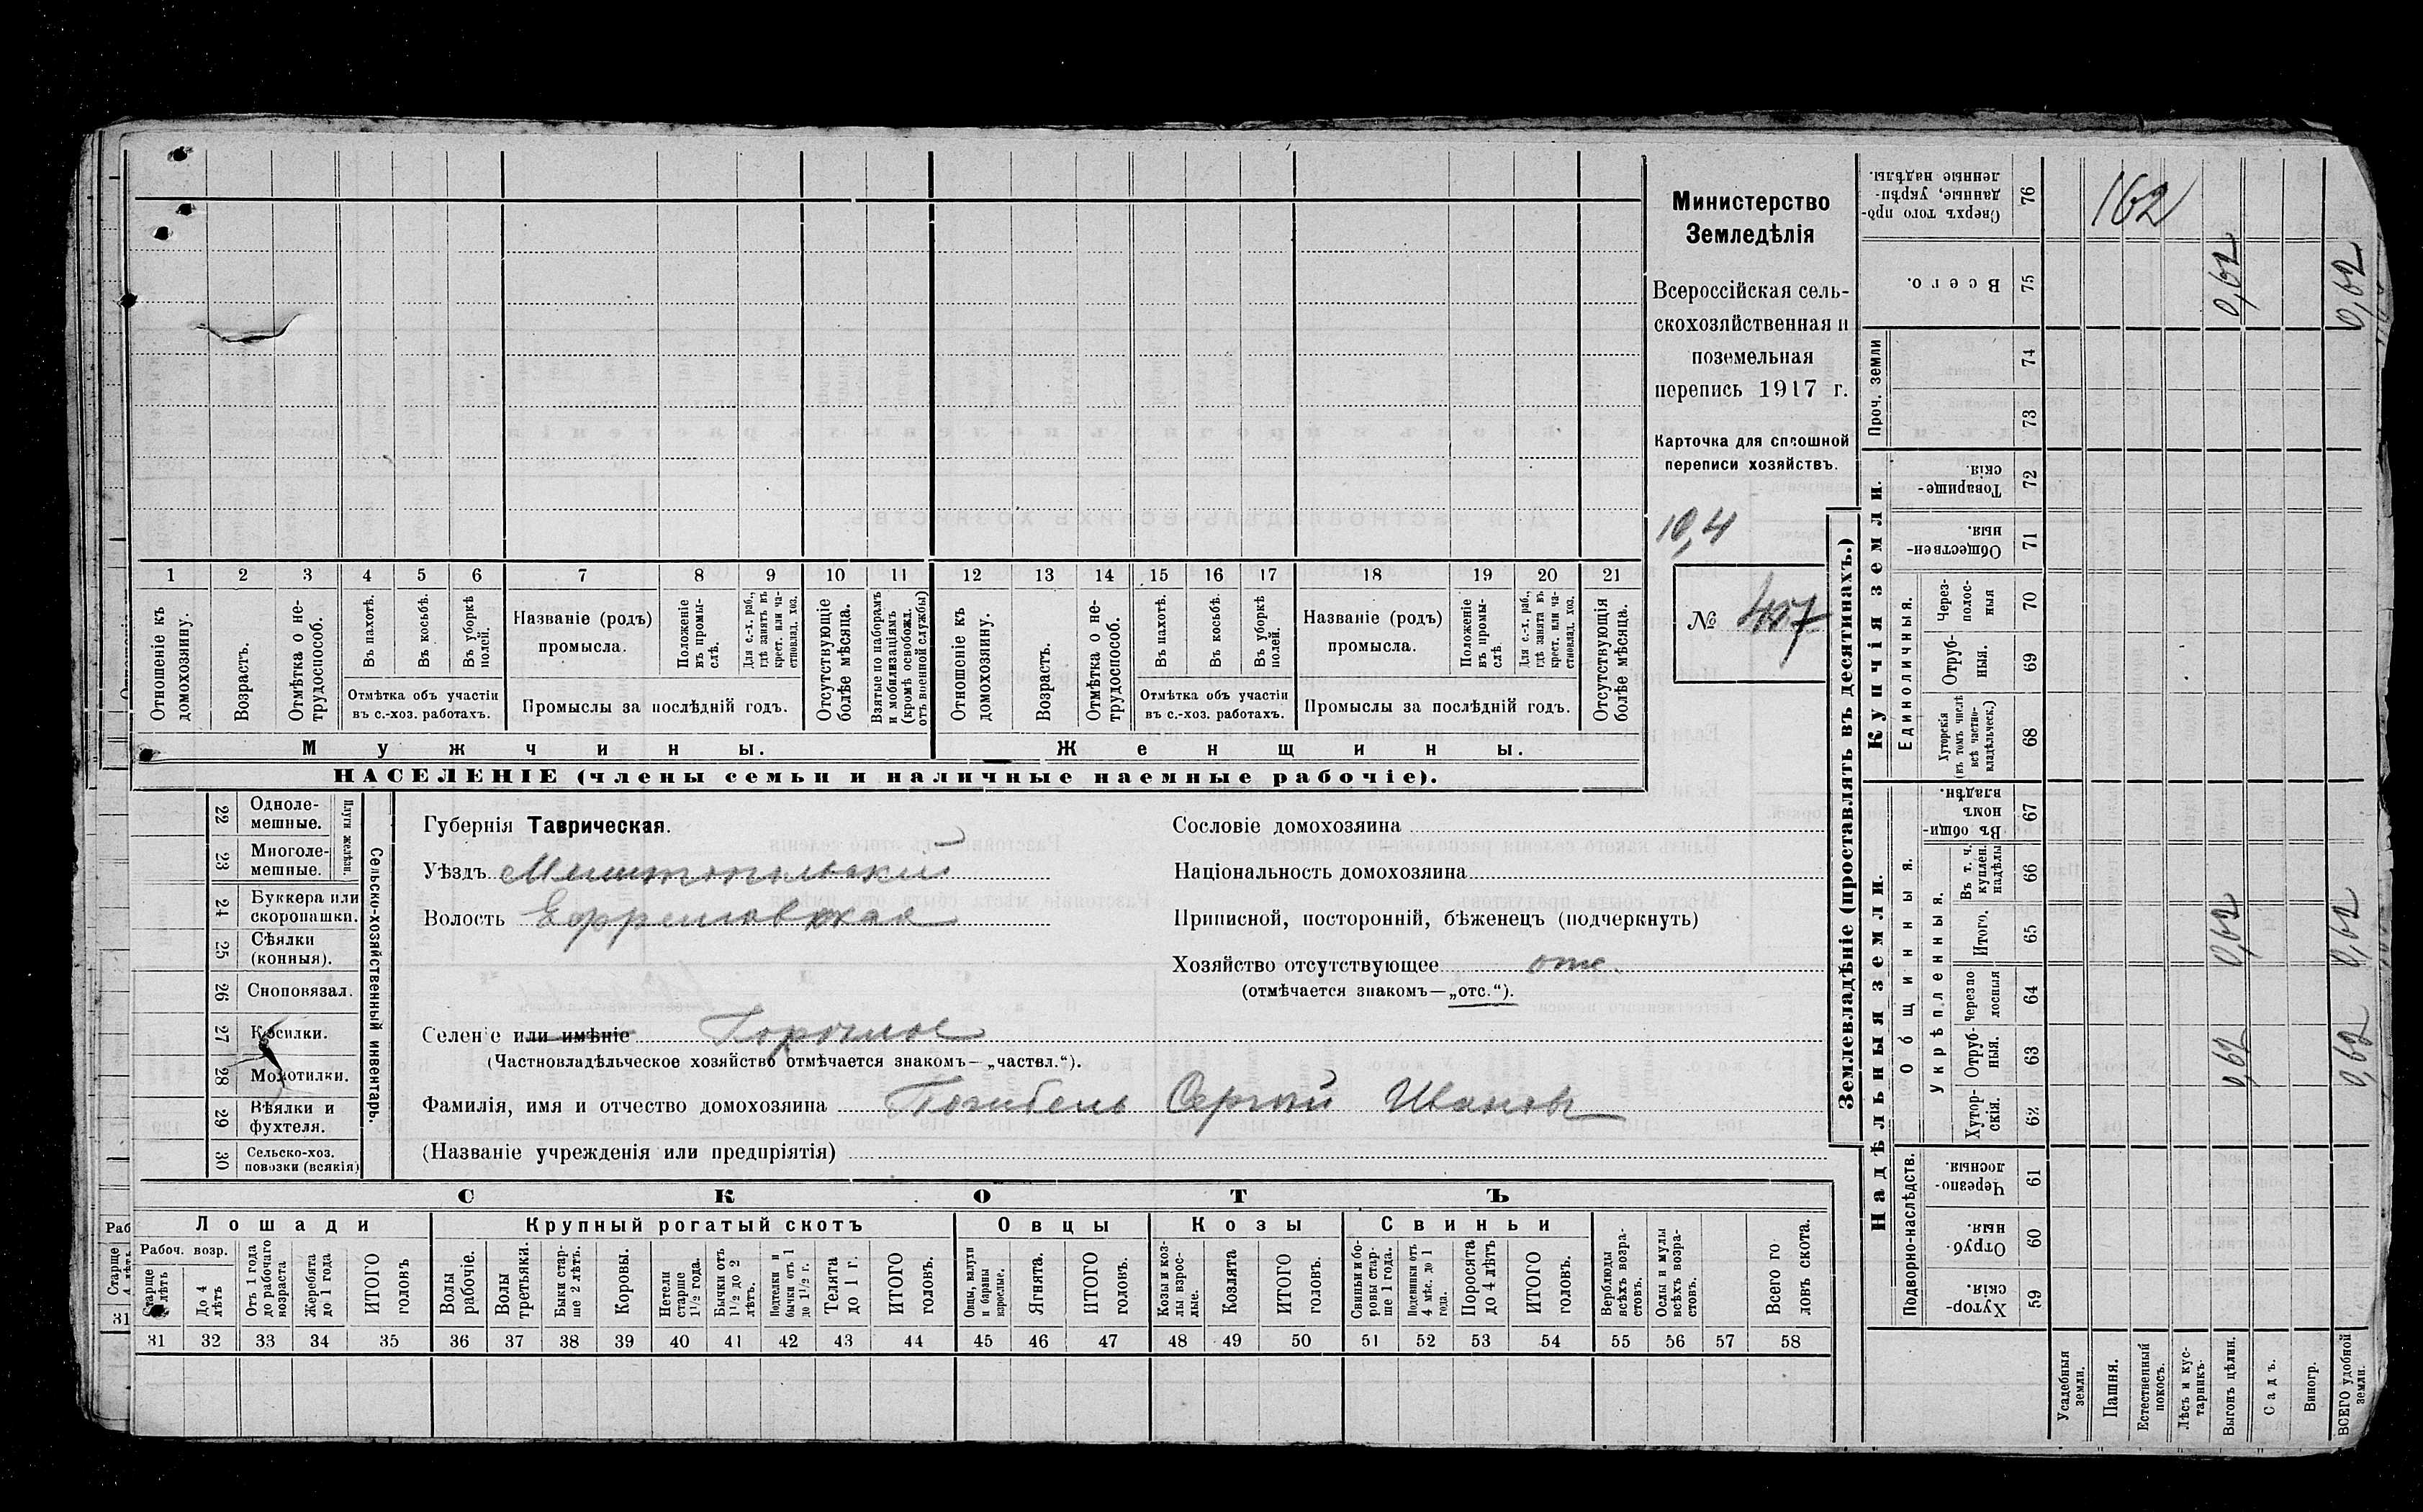 Министерство
Земледѣлія
Всероссійская сель-
скохозяйственная и
поземельная
перепись 1917 г.
Карточка для сплошной
переписи хозяйствъ.
10,4
№ 407
1 2 3 4 5 6 7 8 9 10 11 12 13 14 15 16 17 18 19 20 21
Отношеніе къ домохозяину.
Возрастъ.
Отмѣтка о не-трудоспособ.
Въ пахотѣ.
Въ косьбѣ.
Въ уборкѣ полей.
Отмѣтка объ участіи
въ с.-хоз. работахъ.
Названіе (родъ)
промысла.
Положеніе въ промы-слѣ.
Для с.-х. раб., гдѣ занятъ въ крест. или ча-стновлад. хоз.
Промыслы за послѣдній годъ.
Отсутствующіе болѣе мѣсяца.
Взятые по наборамъ и мобилизаціямъ (кромѣ освобожд. отъ военной службы)
Отношеніе къ домохозяину.
Возрастъ.
Отмѣтка о не-трудоспособ.
Въ пахотѣ.
Въ косьбѣ.
Въ уборкѣ полей.
Отмѣтка объ участіи
въ с.-хоз. работахъ.
Названіе (родъ)
промысла.
Положеніе въ промы-слѣ.
Для с.-х. раб., гдѣ занята въ крест. или ча-стновлад. хоз.
Промыслы за послѣдній годъ.
Отсутствующія болѣе мѣсяца.
Мужчины.
Женщины.
НАСЕЛЕНІЕ (члены семьи и наличные наемные рабочіе).
22 Одноле-мешные.
23 Многоле-мешные.
Плуги желѣзн.
24 Буккера или скоропашки.
25 Сѣялки (конныя).
26 Сноповязал.
27 Косилки.
28 Молотилки.
29 Вѣялки и фухтеля.
30 Сельско-хоз. повозки (всякія)
Сельско-хозяйственный инвентарь.
Губернія Таврическая.
Уѣздъ Мелитопольский
Волость Ефремовская
Сословіе домохозяина
Національность домохозяина
Приписной, посторонній, бѣженецъ (подчеркнуть)
Хозяйство отсутствующее отс.
(отмѣчается знакомъ—„отс.“).
Селеніе или имѣніе Горѣлое
(Частновладѣльческое хозяйство отмѣчается знакомъ—„частвл.“).
Фамилія, имя и отчество домохозяина Погибель Сергѣй Ивановъ
(Названіе учрежденія или предпріятія)
СКОТЪ
Лошади
Крупный рогатый скотъ
Овцы
Козы
Свиньи
Рабоч. возр.
Старше 4 лѣтъ
До 4 лѣтъ
Отъ 1 года до рабочаго возраста
Жеребята до 1 года
ИТОГО головъ
Волы рабочіе.
Волы третьяки.
Быки стар-ше 2 лѣтъ.
Коровы.
Нетели старше 1½ года.
Бычки отъ 1½ до 2 лѣтъ.
Подтелки и бычки отъ 1 до 1½ г.
Телята до 1 г.
ИТОГО головъ.
Овцы, валухи и бараны взрослые.
Ягнята.
ИТОГО головъ.
Козы и коз-лы взрос-лые.
Козлята
ИТОГО головъ.
Свиньи и бо-ровы стар-ше 1 года.
Подсвинки отъ 4 мѣс. до 1 года.
Поросята до 4 лѣтъ
ИТОГО головъ.
Верблюды всѣхъ возра-стовъ.
Ослы и мулы всѣхъ возра-стовъ.
Всего го ловъ скота.
31 32 33 34 35 36 37 38 39 40 41 42 43 44 45 46 47 48 49 50 51 52 53 54 55 56 57 58
Землевладѣніе (проставлять въ десятинахъ.)
Надѣльныя земли.
Купчія земли.
Проч. земли
Общинныя.
Укрѣпленныя.
Подворно-наслѣдств.
Единоличныя.
Сверхъ того про-данные, укрѣп-ленные надѣлы. 76
Всего. 75
74
73
Товарище-скія. 72
Обществен-ныя 71
Через-полос-ныя 70
Отруб-ныя. 69
Хуторскія (въ томъ числѣ всѣ частно-владѣльческ.) 68
Въ общи-номъ владѣн. 67
Въ т. ч. куплен. надѣлы 66
Итого. 65
Черезпо лосныя 64
Отруб-ныя. 63
Хутор-скія. 62
Черезпо-лосныя. 61
Отруб-ныя. 60
Хутор-скія. 59
Усадебныя земли.
Пашня.
Естественный покосъ.
Лѣсъ и кус-тарникъ.
Выгонъ цѣлин.
Садъ.
Виногр.
ВСЕГО удобной земли.
162
0,62
0,62
0,62
0,62
0,62
0,62